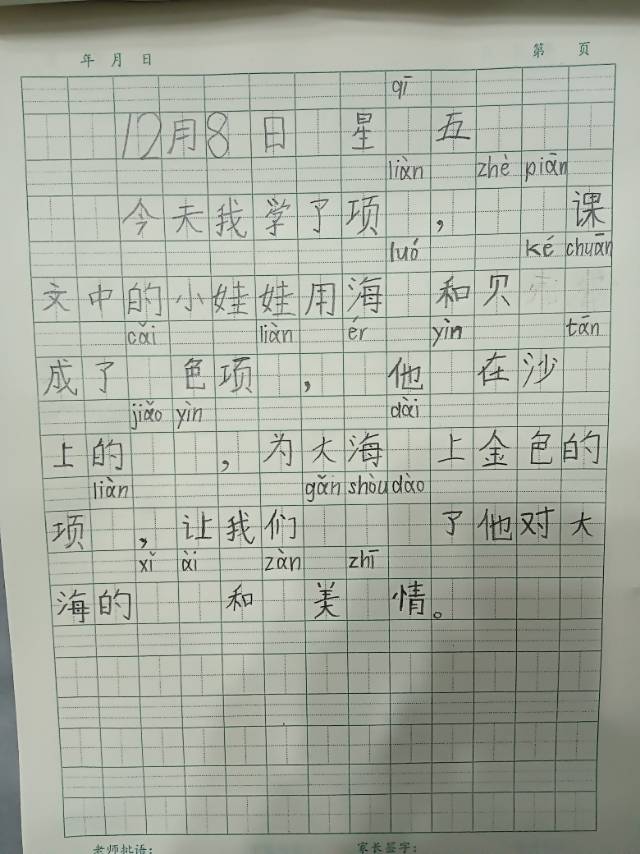 年 月 日 第 页
qī
12月8日 星 五
liàn zhè piān
今天我学了项 ， 课
luó ké chuān
文中的小娃娃用海 和贝
cǎi liàn ér yìn tān
成了 色项 ， 他 在沙
jiǎo yìn dài
上的 ，为大海 上金色的
liàn gǎn shòu dào
项 ，让我们 了他对大
xǐ ài zàn zhī
海的 和 美 情。
老师批语： 家长签字：